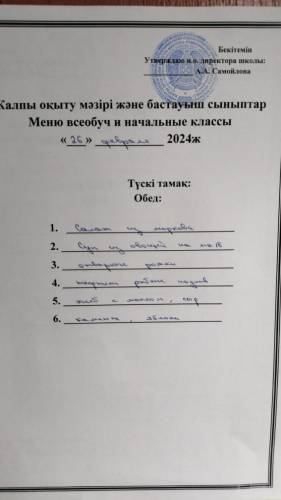 Бекітемін
Утверждаю и.о. директора школы:
А.А. Самойлова
Жалпы оқыту мәзірі және бастауыш сыныптар
Меню всеобуч и начальные классы
« 26 » февраля 2024ж
Түскі тамақ:
Обед:
1. Салат из моркови
2. Суп из овощей на
3. отварные рожки
4.
5. хлеб с маслом, сыр
6. яблоко